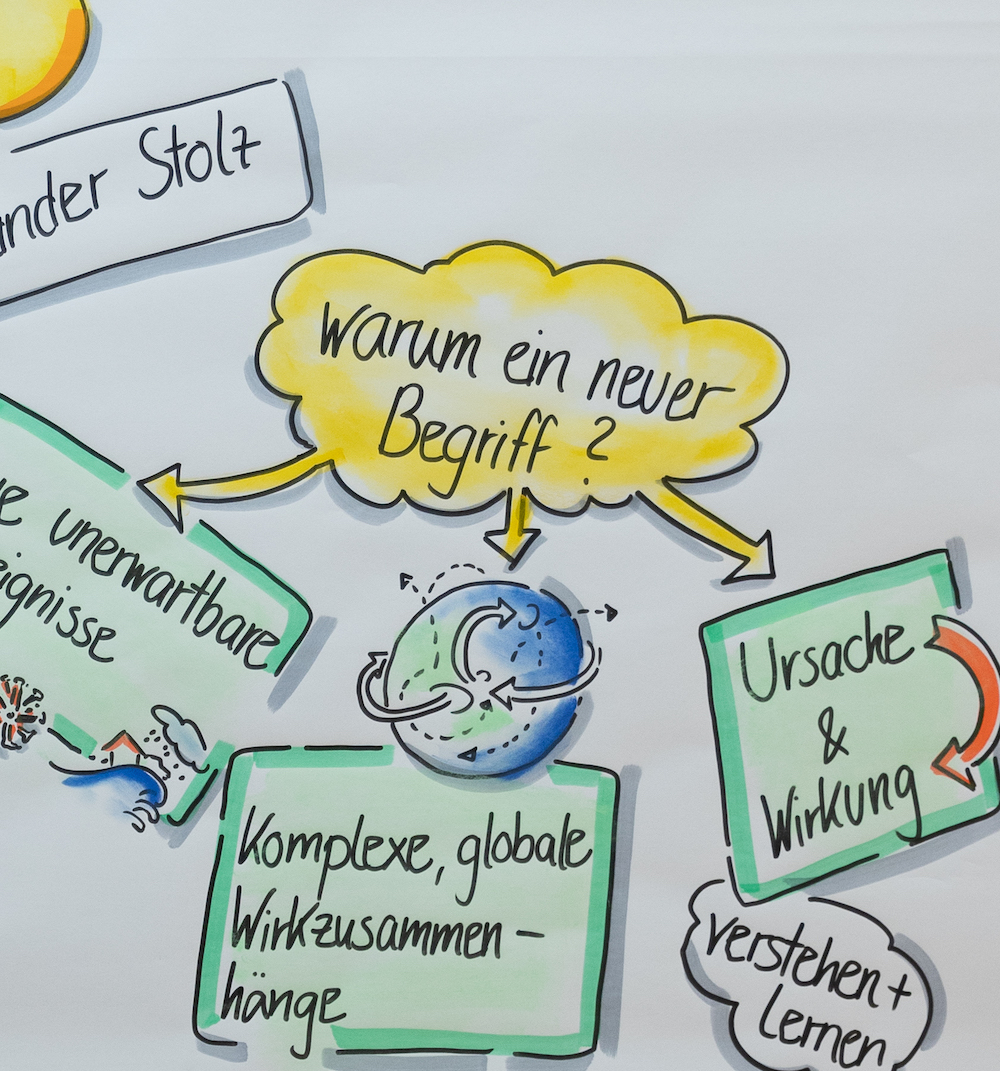 Stolz
Warum ein neuer
Begriff ?
unerwartbare
Ursache
&
Wirkung
Komplexe, globale
Wirkzusammen-
hänge
verstehen +
Lernen